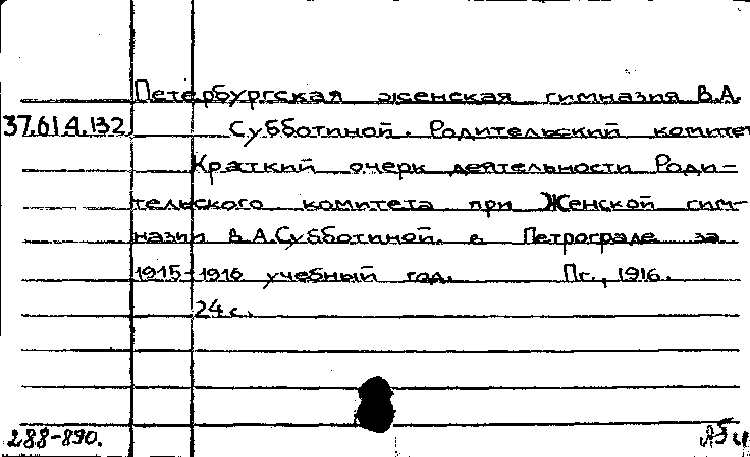 Петербургская женская гимназия В.А.
37.61А.132 Субботиной. Родительский комитет
Краткий очерк деятельности Роди-
тельского комитета при Женской гим-
назии В.А.Субботиной. в Петрограде за
1915-1916 учебный год. Пг., 1916.
24 с.
288-890.